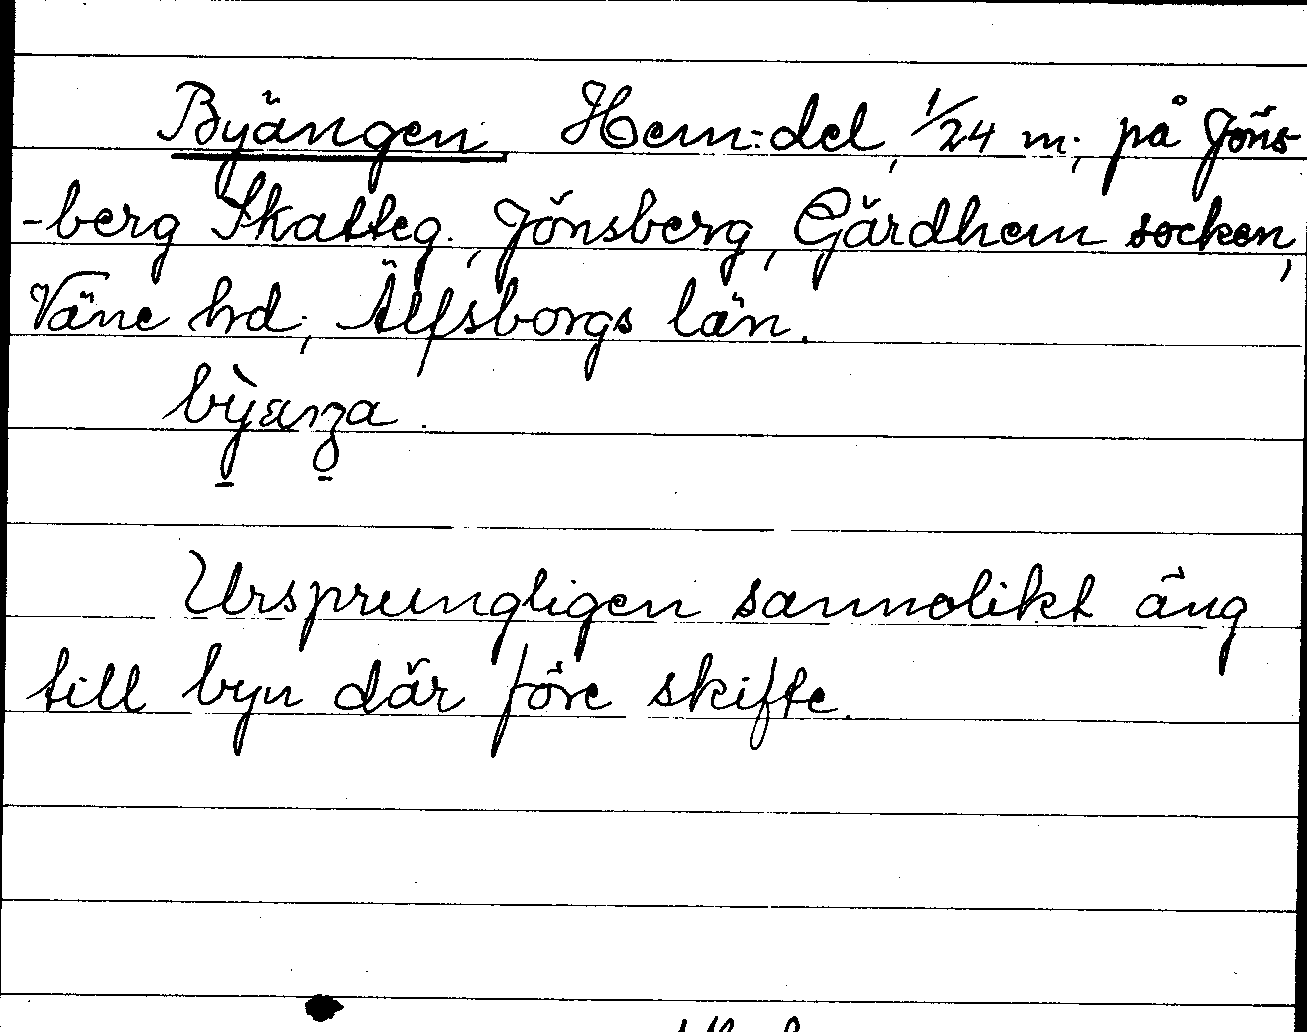 Byängen. Hem:del, 1/24 m; på Jöns-
-berg Skatteg., Jönsberg, Gärdhem socken,
Väne hd; Älfsborgs län.
Ursprungligen sannolikt äng
till byn där före skifte.